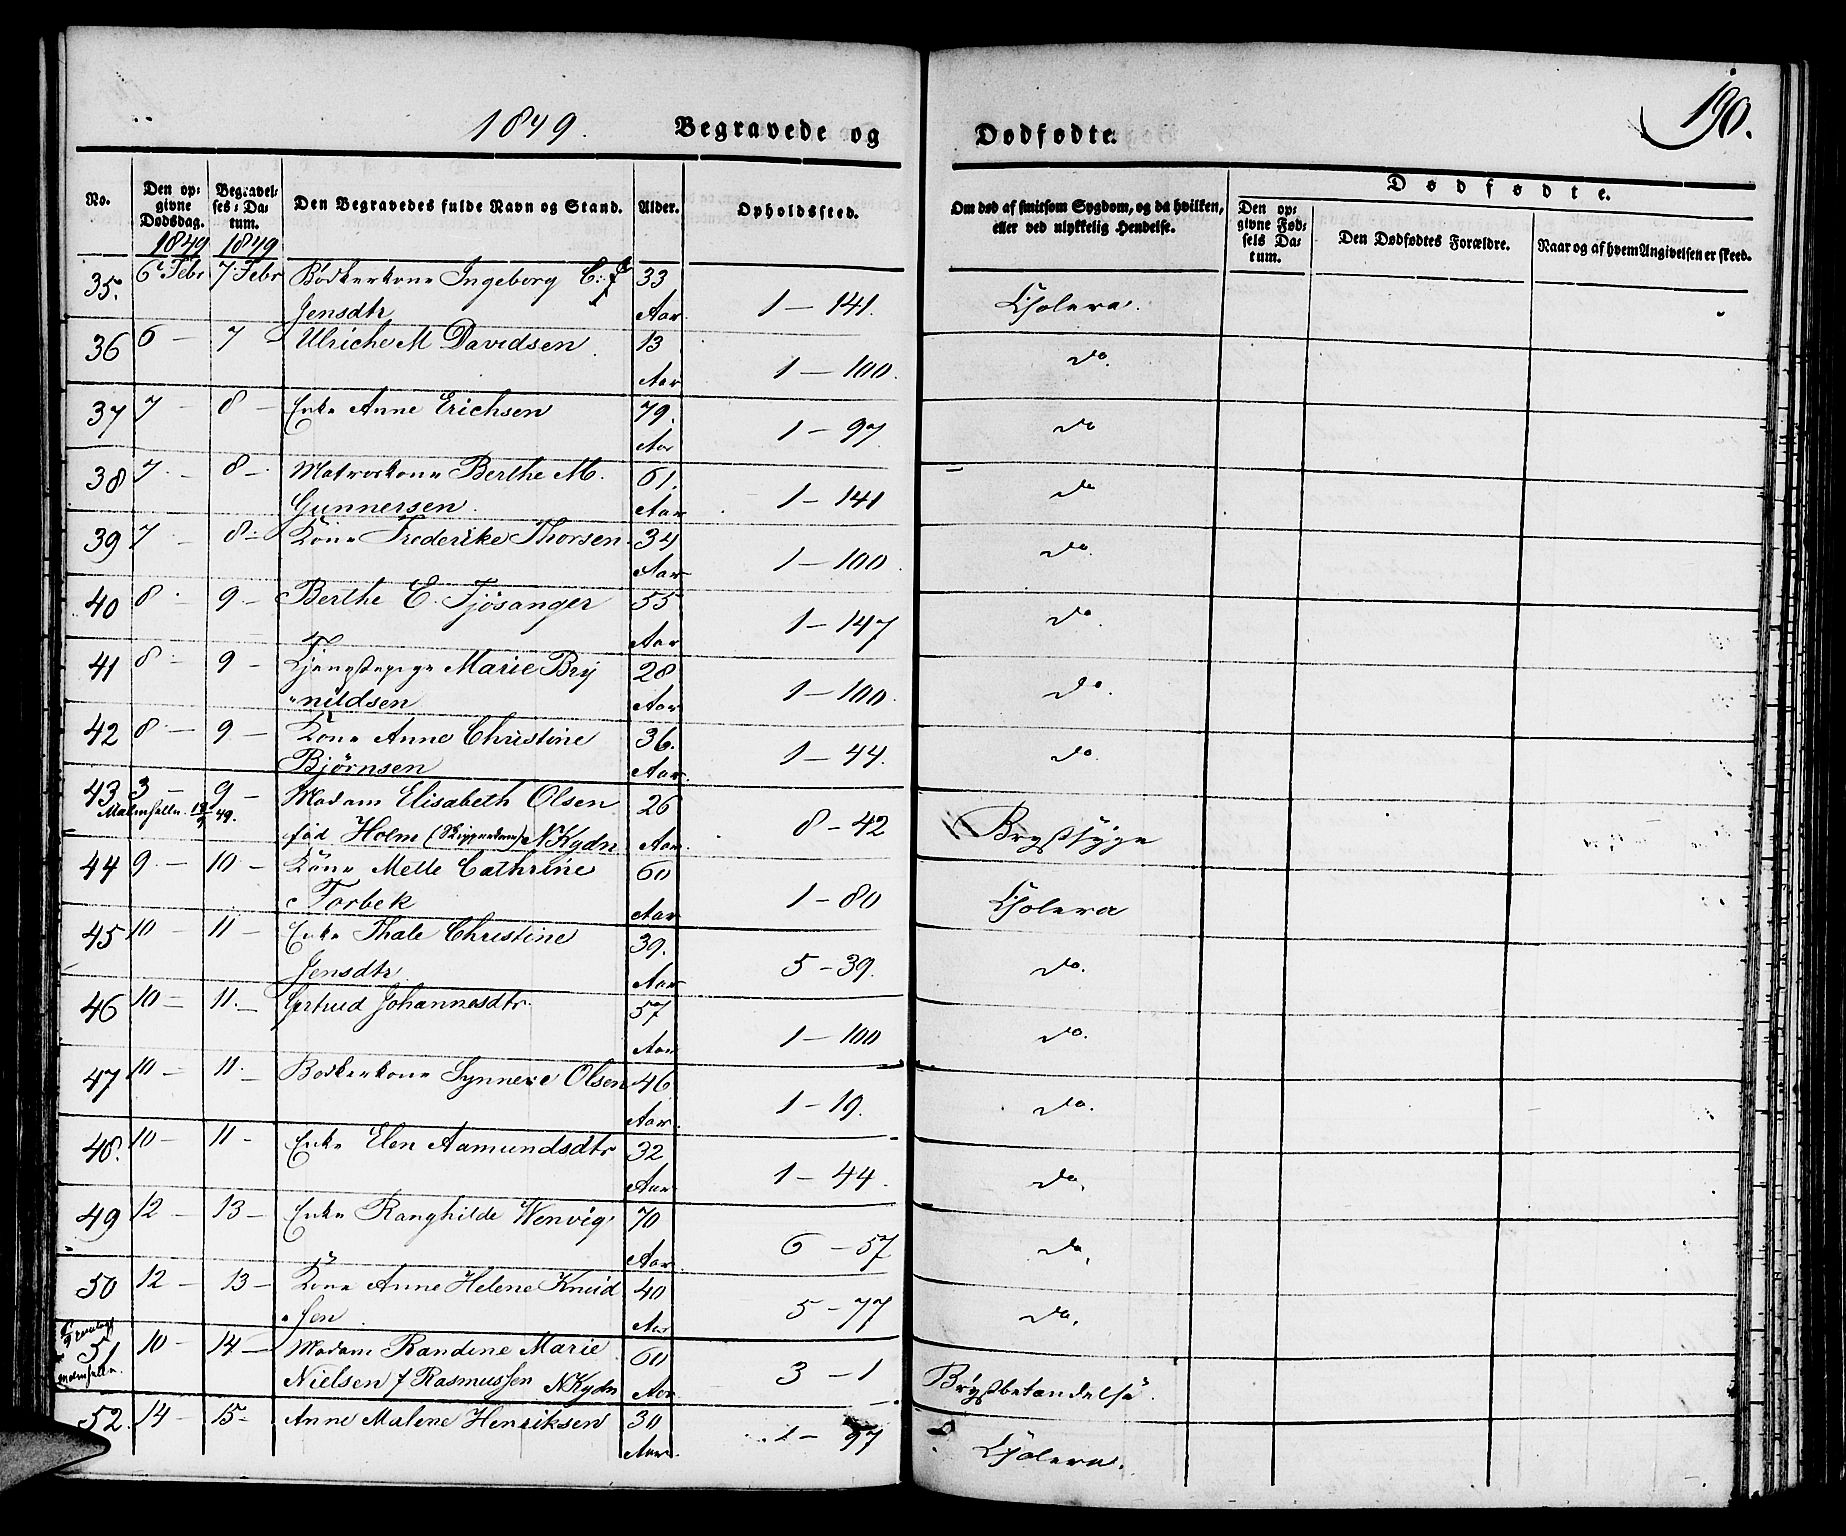 1849. Begravede og Dødfødte. 190.
No. Den opgivne Dødsdag. Begravelses-Datum. Den Begravedes fulde Navn og Stand. Alder. Opholdssted. Om død af smitsom Sygdom, og da hvilken, eller ved ulykkelig Hendelse. Dødfødte.
Den opgivne Fødsels Datum. Den Dødfødtes Forældre. Naar og af hvem Angivelsen er skeed.
1849 1849
35. 6 Febr 7 Febr Bødkerkone Ingeborg C: f 33
Jensdtr Aar 1 - 141. Cholera.
36 6 - 7 Ulriche M Davidsen 13
Aar 1 - 100. do.
37 7 - 8 - Enke Anne Erichsen 79.
Aar 1 - 97. do
38 7 - 8 - Matroskone Berthe M. 61.
Gunnersen. Aar 1 - 141 do
39 7 - 8 - Kone Frederikke Thorsen 34
Aar 1 - 100. do.
40 8 - 9 - Berthe E. Fjøsanger 55
Aar 1 - 147 do.
41 8 - 9 - Tjenestepige Marie Bry 28
nildsen Aar 1 - 100. do.
42 8 - 9 - Kone Anne Christine 36.
Bjørnsen Aar 1 - 44. do.
43 3 - 9 - Madam Elisabeth Olsen 26
fød Holm NKydn Aar 8 - 42 Brystsyge
44 9 - 10 - Kone Mette Cathrine 60
Torbek Aar 1 - 80 Cholera
45 10 - 11 - Enke Thale Christine 39.
Jensdtr Aar 5 - 39. do.
46 10 - 11 - Gertrud Johannesdtr 57
Aar 1 - 100 do.
47 10 - 11 - Bødkerkone Synneve Olsen 46
Aar 1 - 19. do.
48. 10 - 11 - Enke Elen Aamundsdtr 32
Aar 1 - 44. do.
49 12 - 13 - Enke Ranghilde Wenvig 70
Aar 6 - 57 do.
50 12 - 13 - Kone Anne Helene Knud 40
sen Aar 5 - 77 do.
51 10 - 14 - Madam Randine Marie 60
Nielsen f Rasmussen NKydn Aar 3 - 1 Brystbetændelse.
52. 14 - 15 - Anne Malene Henriksen 30
Aar 1 - 97 Cholera.